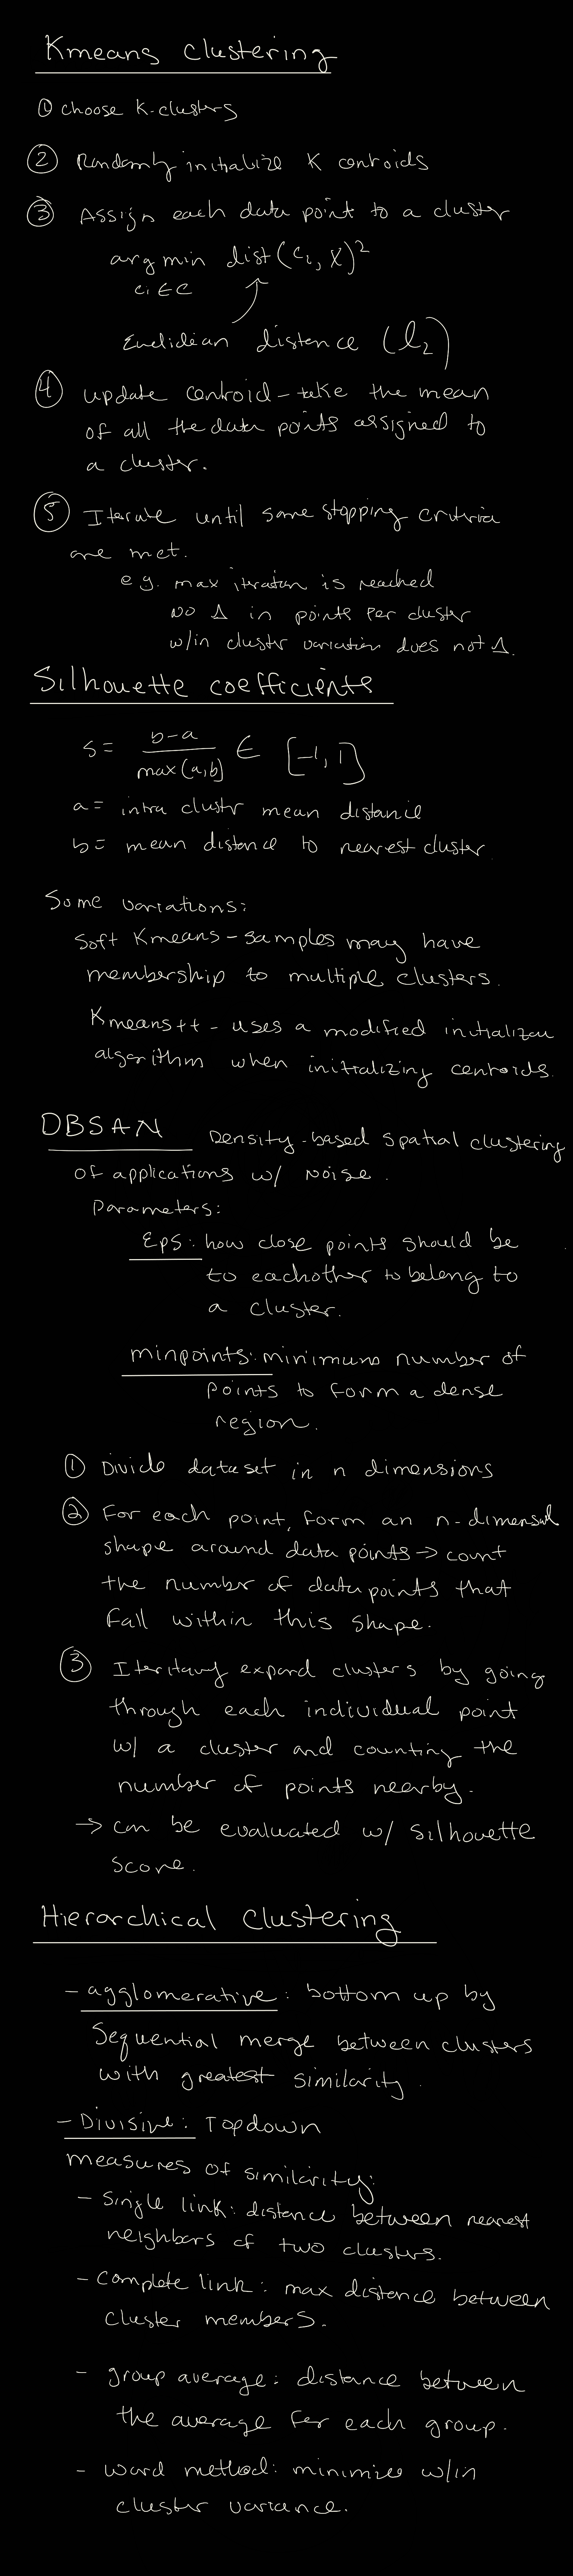 Kmeans Clustering
① choose K-clusters
② Randomly initialize K centroids
③ Assign each data point to a cluster
arg min dist(cᵢ, x)²
cᵢ ∈ C
Euclidian distance (l₂)
④ update centroid - take the mean
of all the data points assigned to
a cluster.
⑤ Iterate until some stopping criteria
are met.
e.g. max iteration is reached
no Δ in points per cluster
w/in cluster variation does not Δ.
Silhouette coefficients
s = b-a / max(a,b) ∈ [-1, 1]
a = intra cluster mean distance
b = mean distance to nearest cluster
Some variations:
Soft Kmeans - samples may have
membership to multiple clusters.
Kmeans++ - uses a modified
algorithm when initializing centroids.
DBSAN Density-based spatial clustering
of applications w/ noise.
Parameters:
Eps: how close points should be
to eachother to belong to
a cluster.
minpoints: minimum number of
points to form a dense
region.
① Divide dataset in n dimensions
② For each point, form an n-dimensional
shape around data points → count
the number of data points that
fall within this shape.
③ expand clusters by going
through each individual point
w/ a cluster and counting the
number of points nearby.
→ can be evaluated w/ silhouette
score.
Hierarchical Clustering
- agglomerative: bottom up by
sequential merge between clusters
with greatest similarity.
- Divisive: Topdown
measures of similarity:
- single link: distance between nearest
neighbors of two clusters.
- complete link: max distance between
cluster members.
- group average: distance between
the average for each group.
- ward method: minimize w/in
cluster variance.